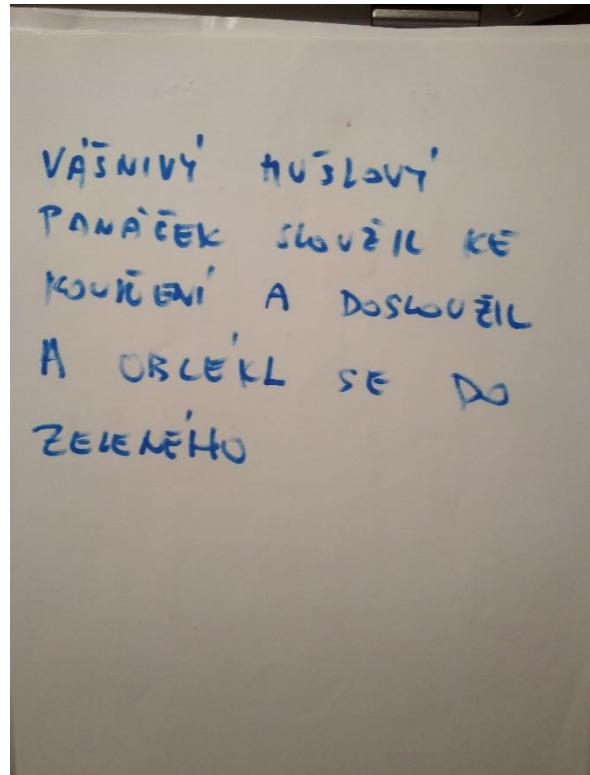 VÁŠNIVÝ MUŠLOVÝ
PANÁČEK SLOUŽIL KE
KOUŘENÍ A DOSLOUŽIL
A OBLÉKL SE DO
ZELENÉHO